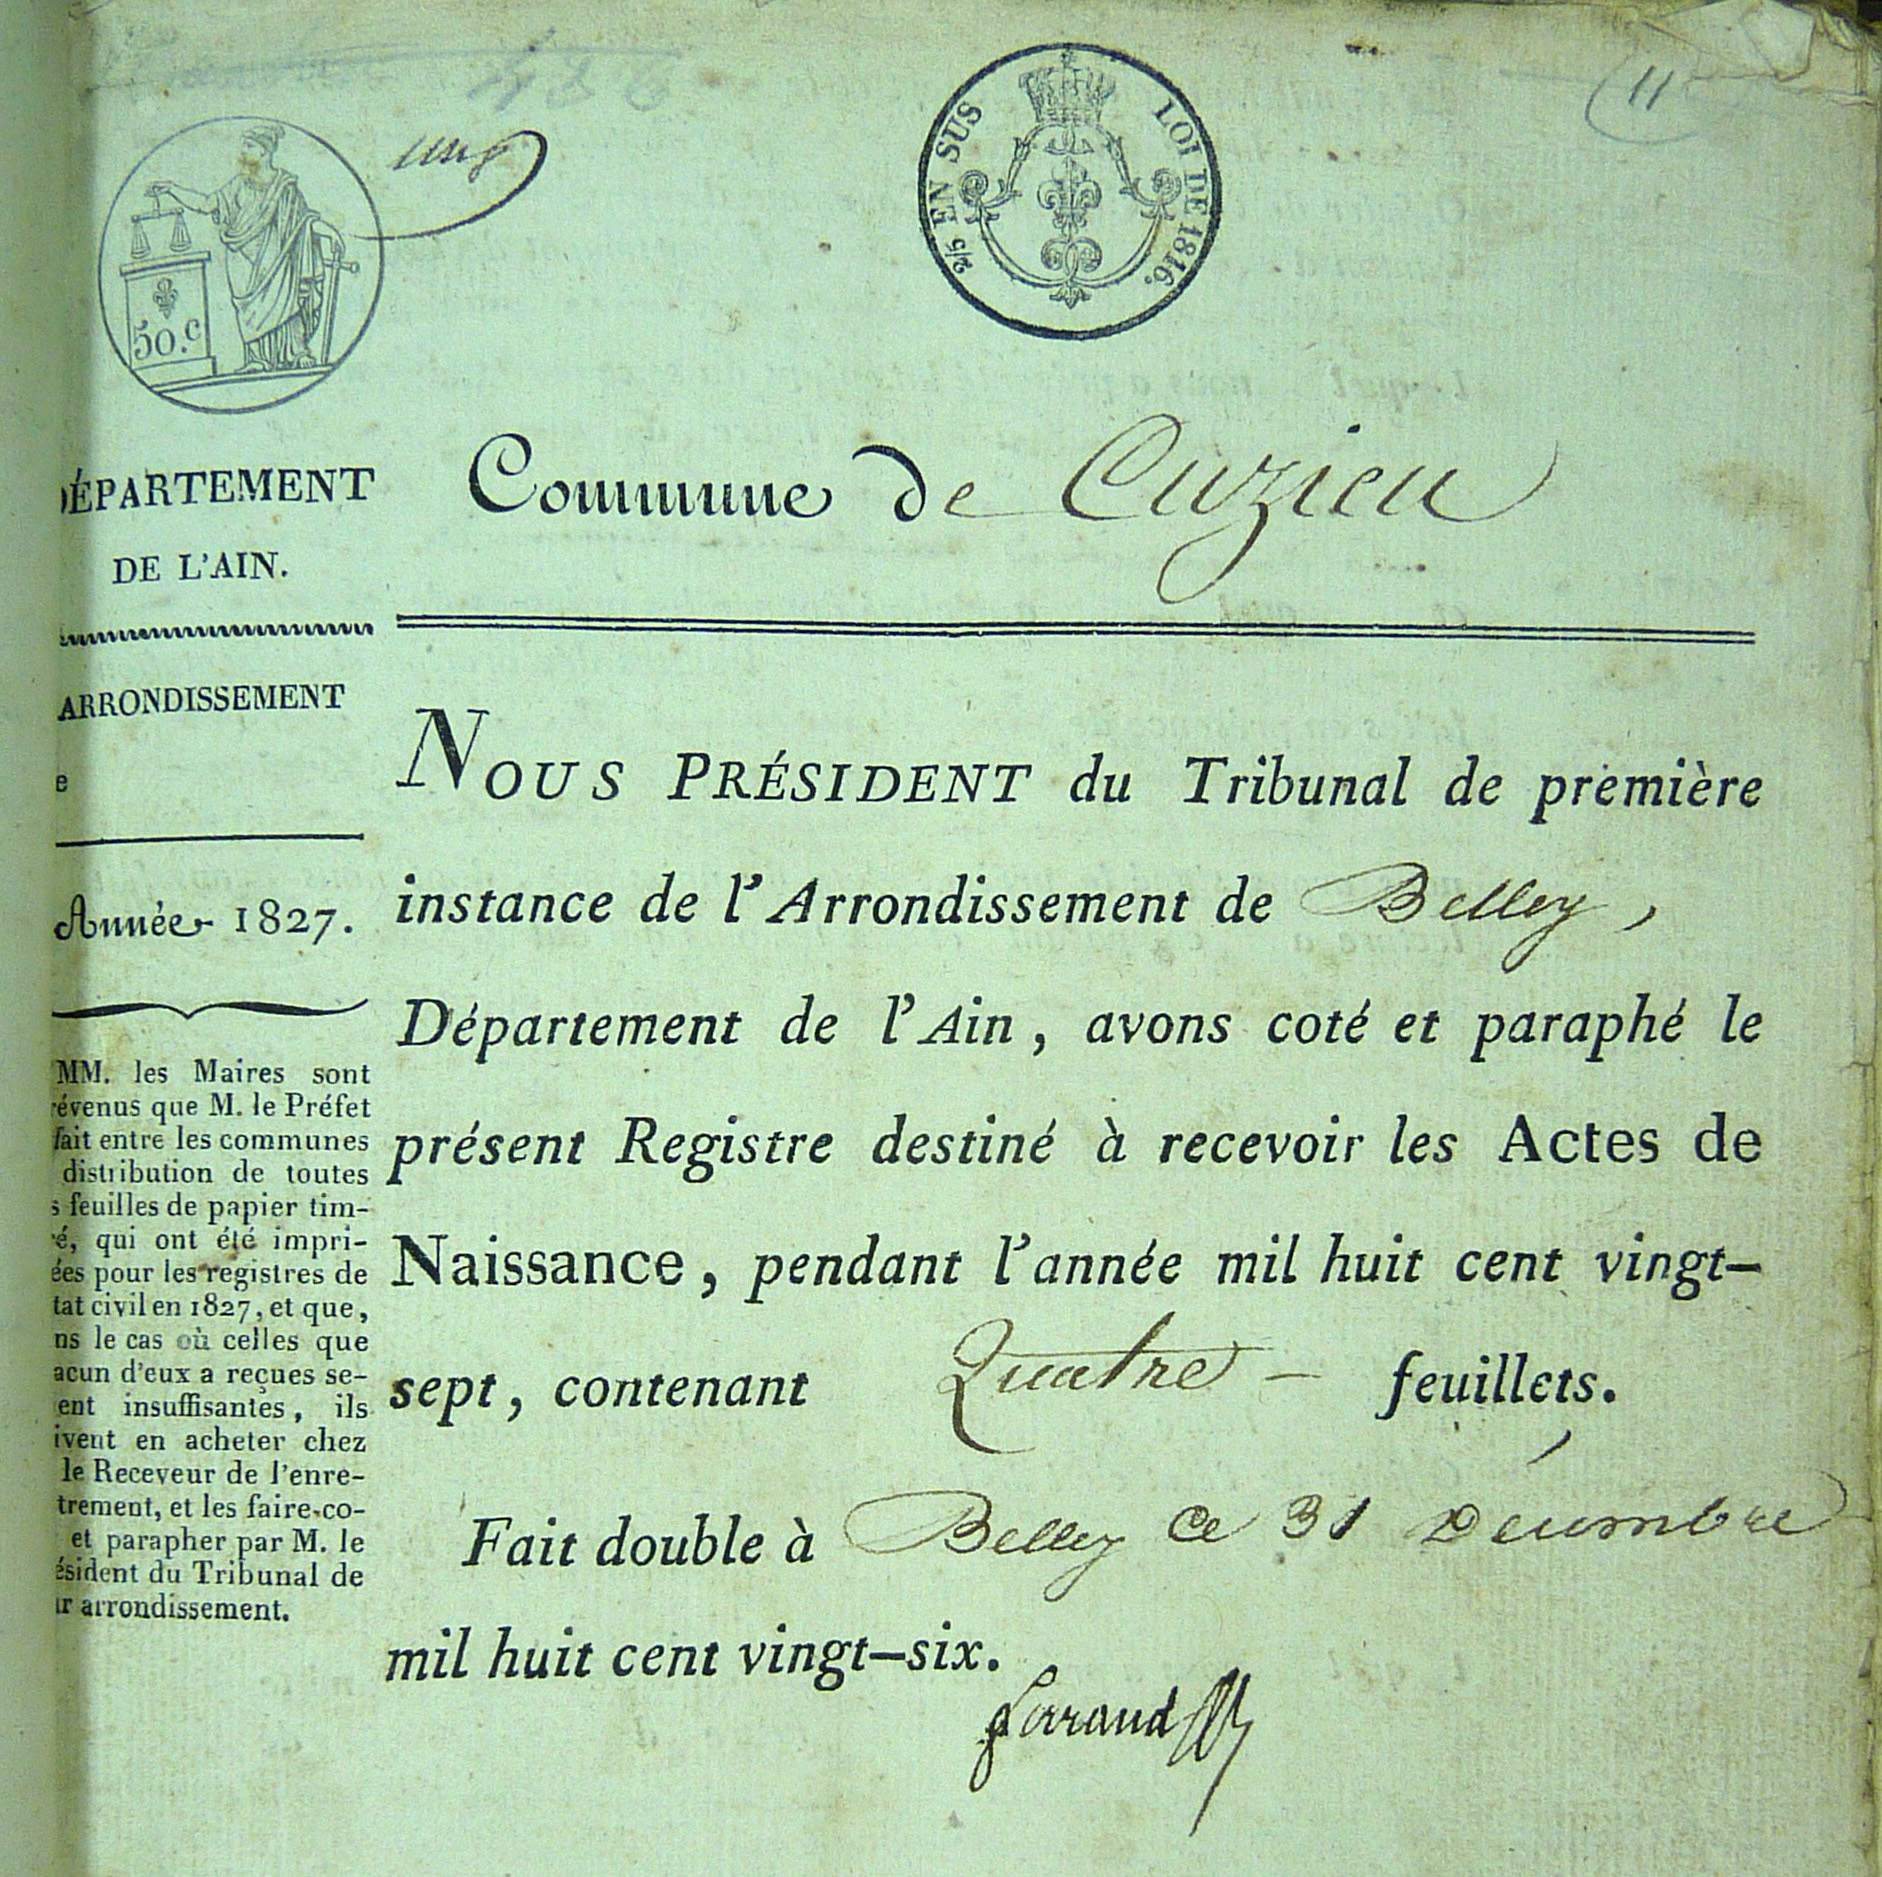 11
ung
50.c
2/5 EN SUS LOI DE 1816.
DÉPARTEMENT
DE L'AIN.
ARRONDISSEMENT
e
Année 1827.
MM. les Maires sont
révenus que M. le Préfet
fait entre les communes
distribution de toutes
s feuilles de papier tim-
ré, qui ont été impri-
ées pour les registres de
tat civil en 1827, et que,
ns le cas où celles que
acun d'eux a reçues se-
ent insuffisantes, ils
ivent en acheter chez
le Receveur de l'enre-
trement, et les faire co-
et parapher par M. le
ésident du Tribunal de
ur arrondissement.
Commune de Cuzieu
NOUS PRÉSIDENT du Tribunal de première
instance de l'Arrondissement de Belley,
Département de l'Ain, avons coté et paraphé le
présent Registre destiné à recevoir les Actes de
Naissance, pendant l'année mil huit cent vingt-
sept, contenant Quatre - feuillets.
Fait double à Belley Ce 31 Décembre
mil huit cent vingt-six.